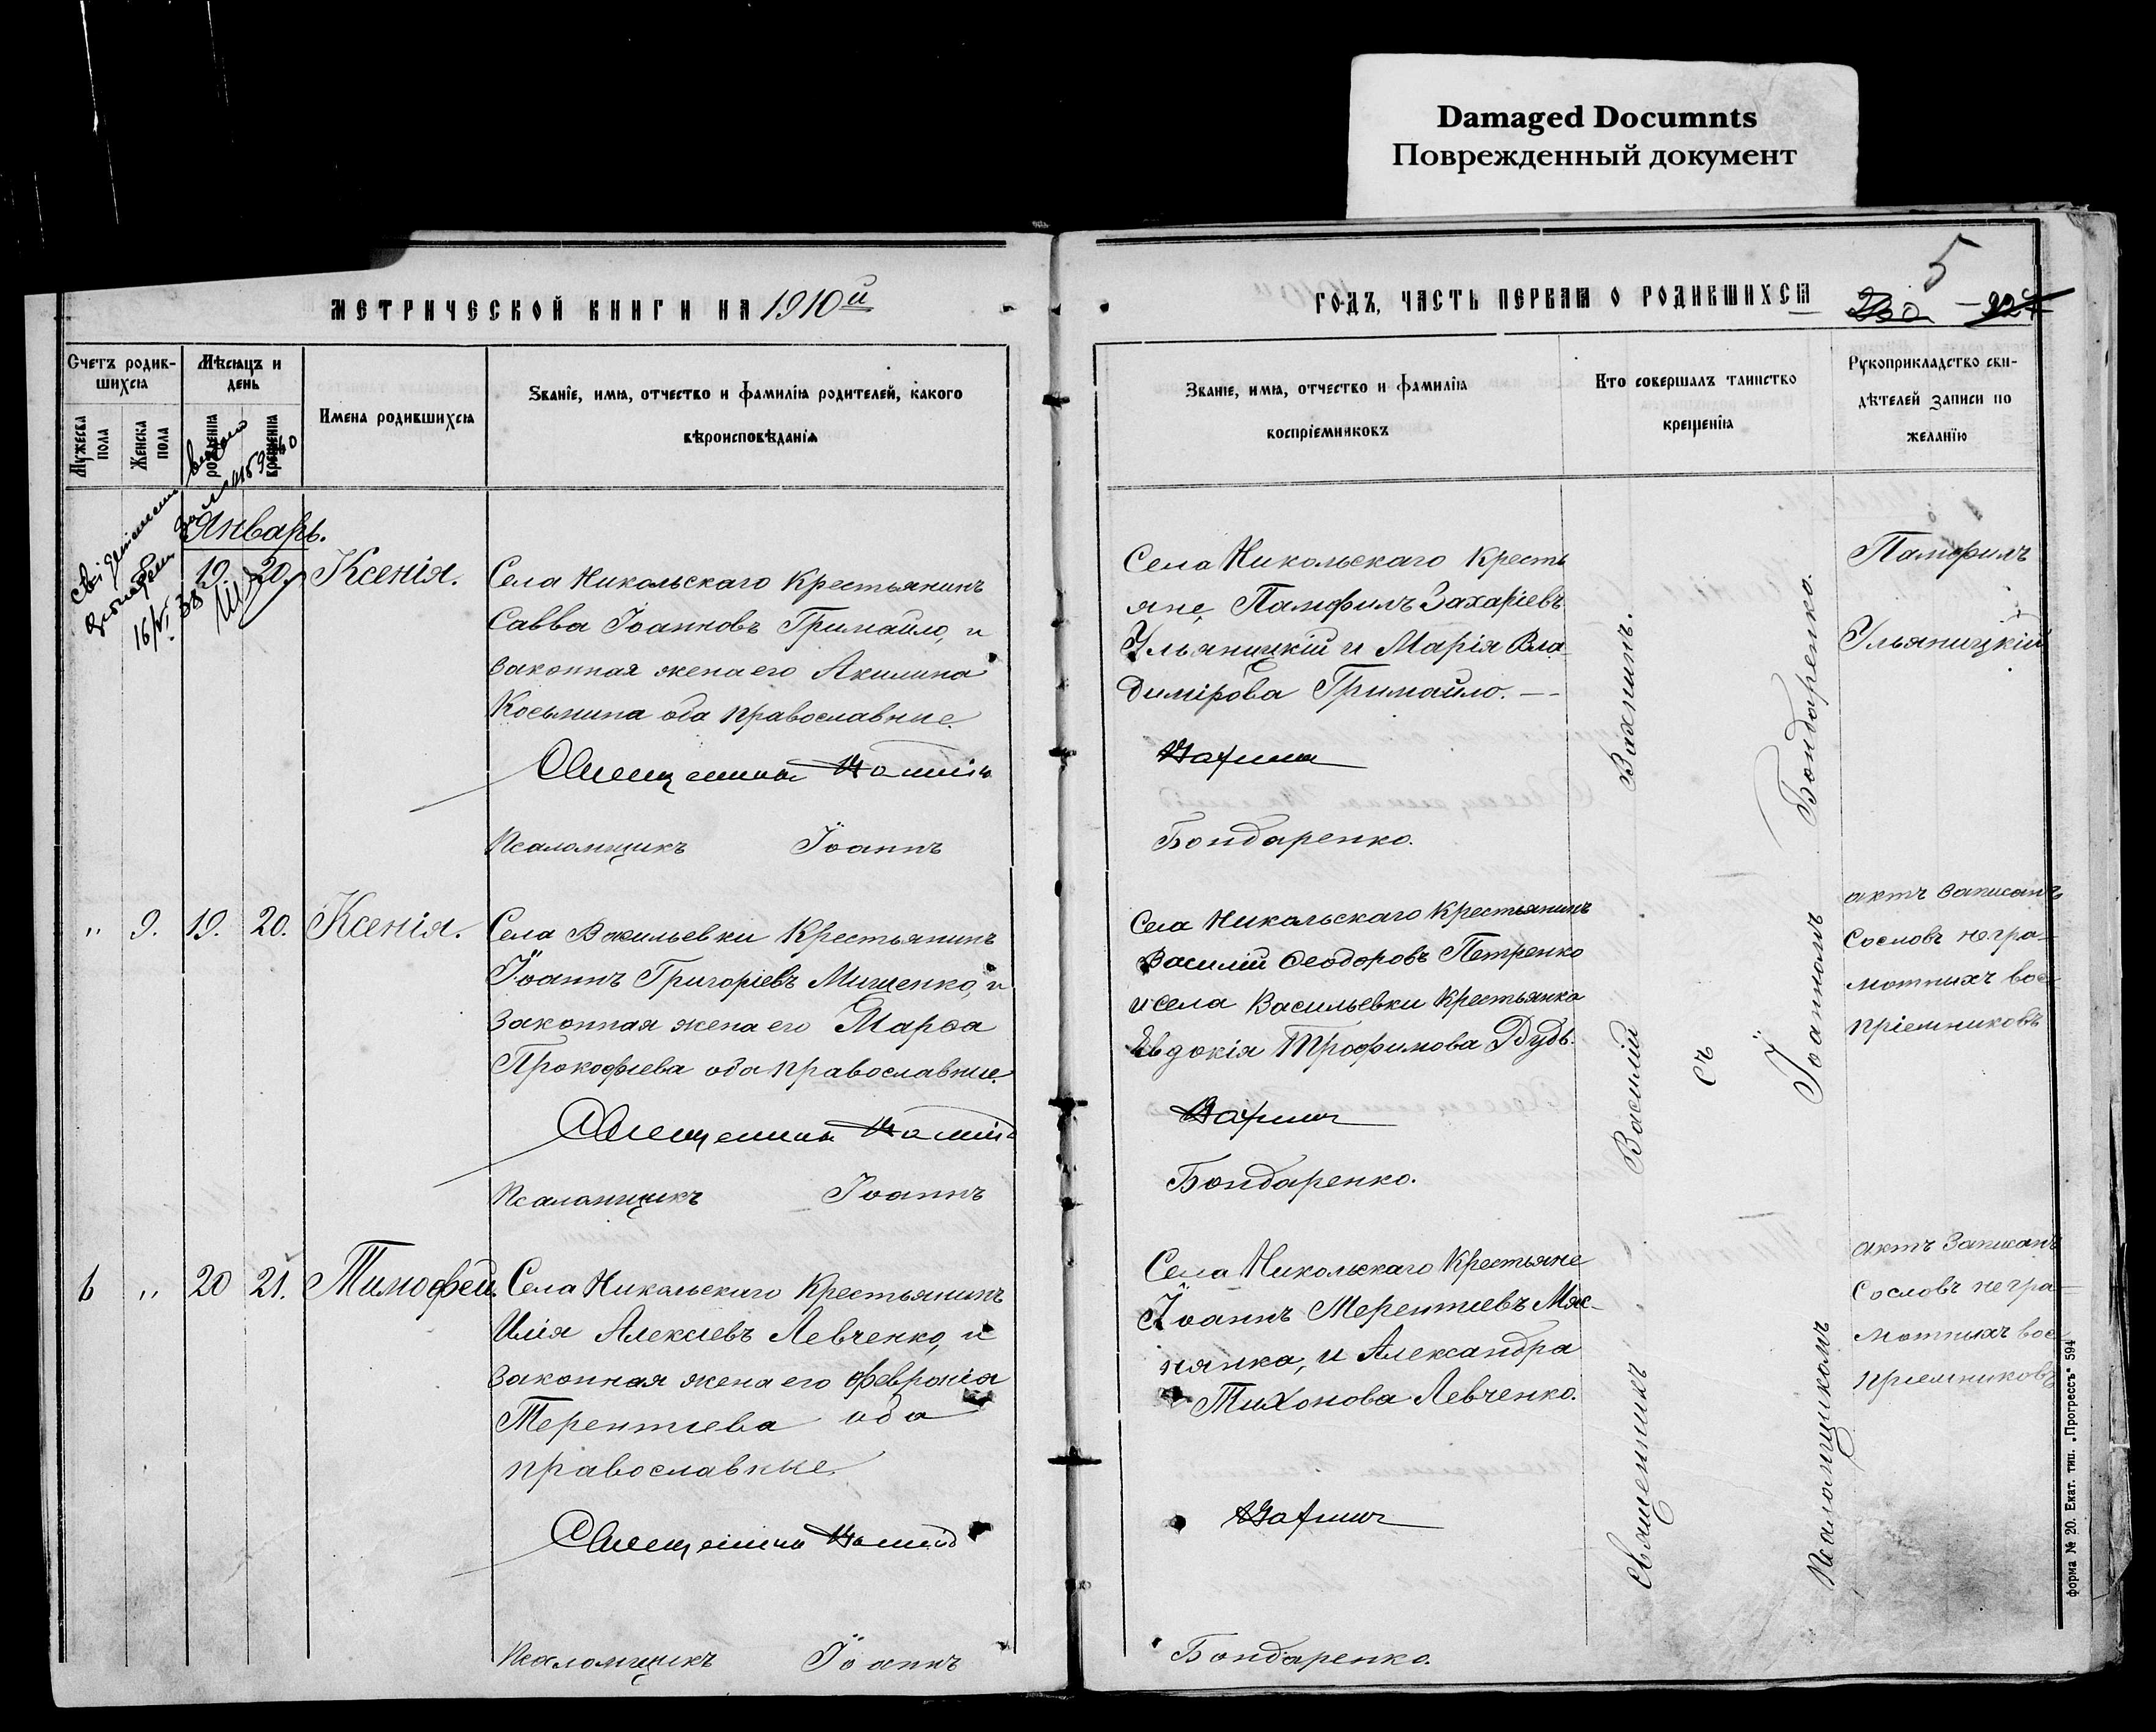 Damaged Documnts
Поврежденный документ
МЕТРИЧЕСКОЙ КНИГИ НА 1910й
Счетъ родив-
шихся
Мужеска
пола
Женска
пола
Мѣсяцъ и
день
рожденія
крещенія
Имена родившихся
Званіе, имя, отчество и фамилія родителей, какого
вѣроисповѣданія
Январь.
19. 20. Ксенія.
Села Никольскаго Крестьянинъ
Савва Іоанновъ Гримайло, и
законная жена его Акилина
Косьмина оба православные.
Священникъ Василій
Псаломщикъ Іоаннъ
„ 9. 19. 20. Ксенія.
Села Васильевки Крестьянинъ
Іоаннъ Григоріевъ Мищенко, и
законная жена его Марѳа
Прокофіева оба православные.
Священникъ Василій
Псаломщикъ Іоаннъ
6 „ 20 21. Тимофей.
Села Никольскаго Крестьянинъ
Илія Алексіевъ Левченко, и
законная жена его Февронія
Терентіева оба
православные.
Священникъ Василій
Псаломщикъ Іоаннъ
5
ГОДЪ, ЧАСТЬ ПЕРВАЯ О РОДИВШИХСЯ
Званіе, имя, отчество и фамилія
воспріемниковъ
Кто совершалъ таинство
крещенія
Рукоприкладство сви-
дѣтелей записи по
желанію
Села Никольскаго Кресть
яне, Памфилъ Захаріевъ
Ульяницкій и Марія Вла-
димірова Гримайло. —
Вахнинъ
Бондаренко.
Села Никольскаго Крестьянинъ
Василій Ѳеодоровъ Петренко
и села Васильевки Крестьянка
Евдокія Трофимова Дудь.
Вахнинъ
Бондаренко.
Села Никольскаго Крестьяне
Іоаннъ Терентіевъ Мяс-
нянка, и Александра
Тихонова Левченко.
Вахнинъ
Бондаренко.
Священникъ Василій Вахнинъ.
съ
Псаломщикомъ Іоанномъ Бондаренко.
Памфилъ
Ульяницкій
актъ записанъ
со словъ негра-
мотныхъ вос-
пріемниковъ
актъ записанъ
со словъ негра-
мотныхъ вос-
пріемниковъ
форма № 20. Екат. тип. „Прогрессъ" 594